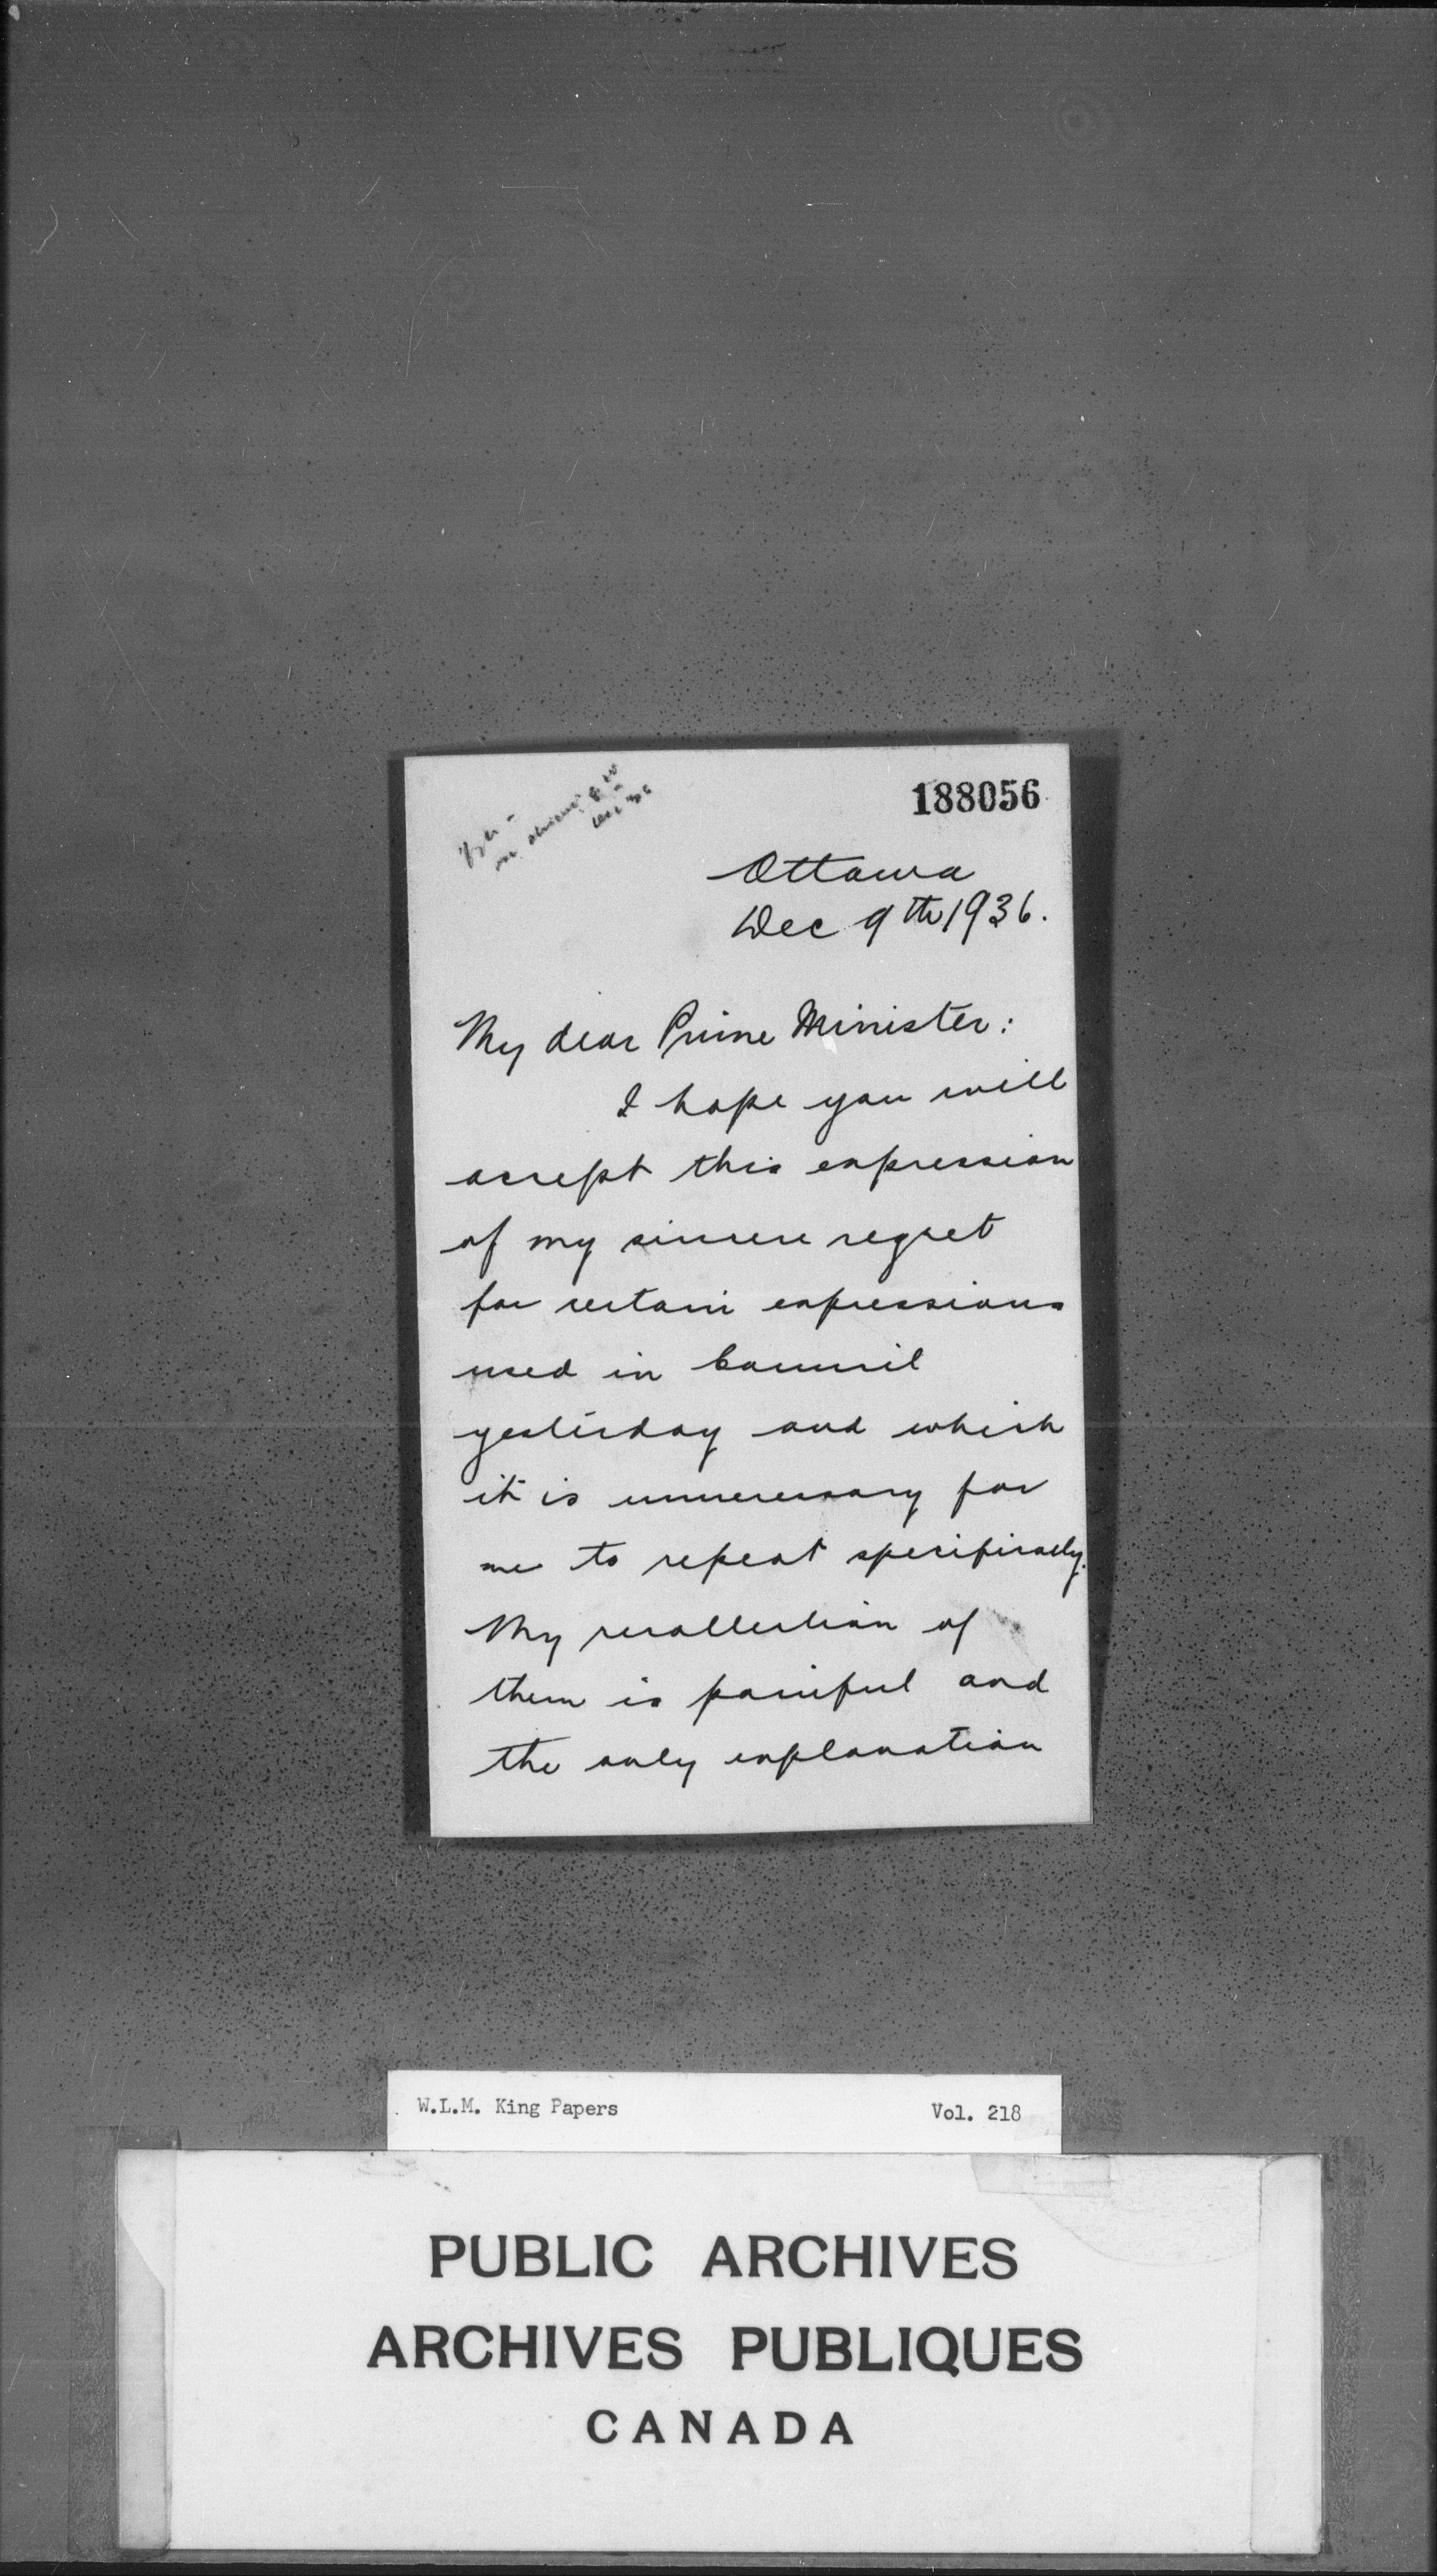 188056
Ottawa
Dec 9th 1936.
My dear Prime Minister:
I hope you will
accept this expression
of my sincere regret
for certain expressions
used in Council
yesterday and which
it is unnecessary for
me to repeat specifically.
My recollection of
them is painful and
the only explanation
W.L.M. King Papers Vol. 218
PUBLIC ARCHIVES
ARCHIVES PUBLIQUES
CANADA